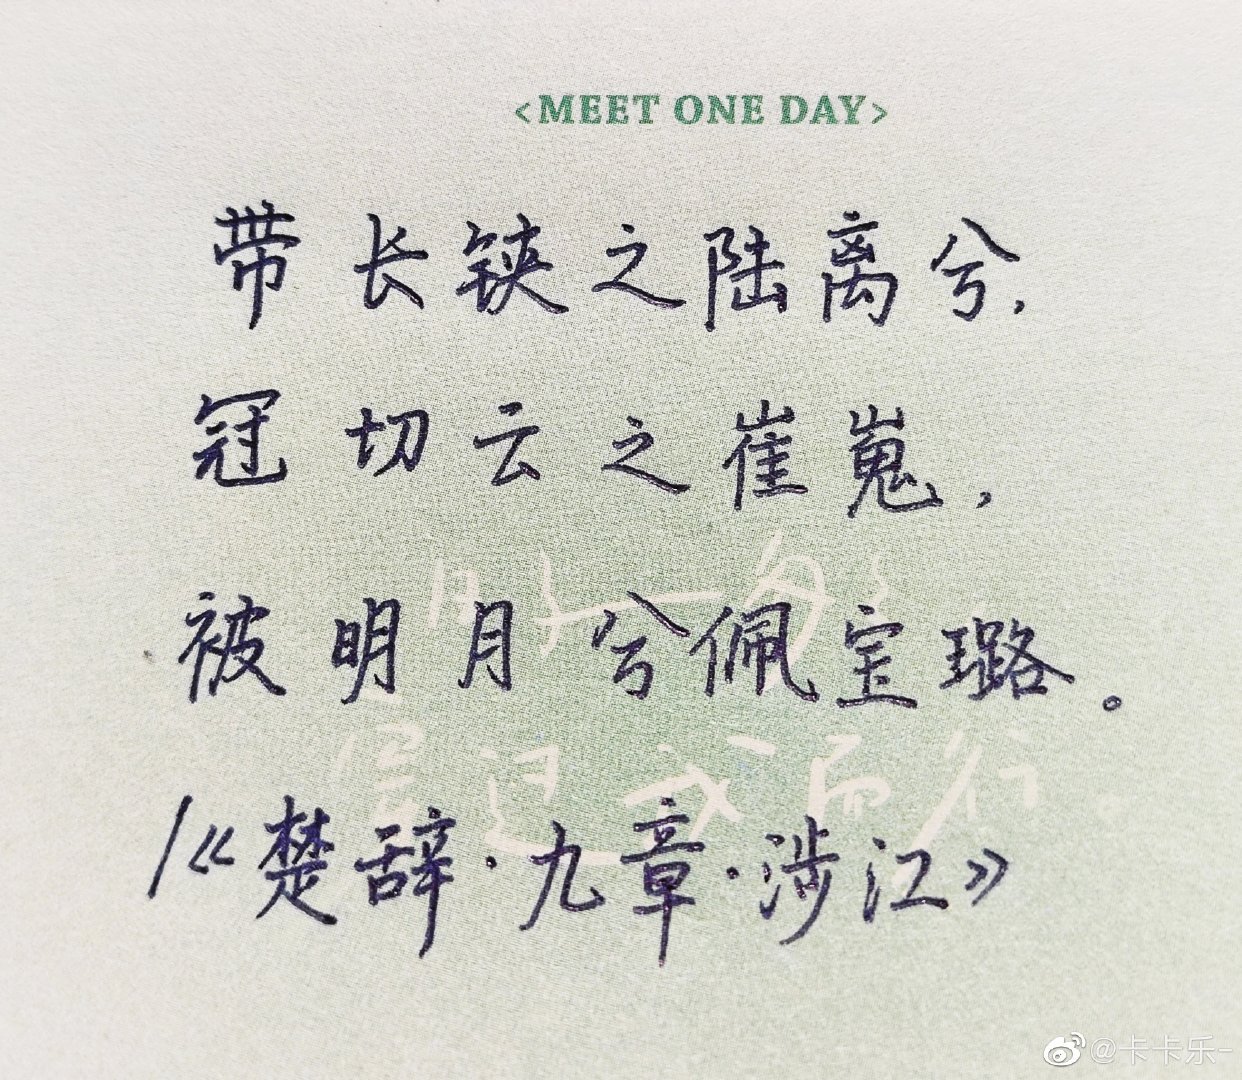 <MEET ONE DAY>
带长铗之陆离兮,
冠切云之崔嵬,
被明月兮佩宝璐。
/《楚辞·九章·涉江》
@卡卡乐-